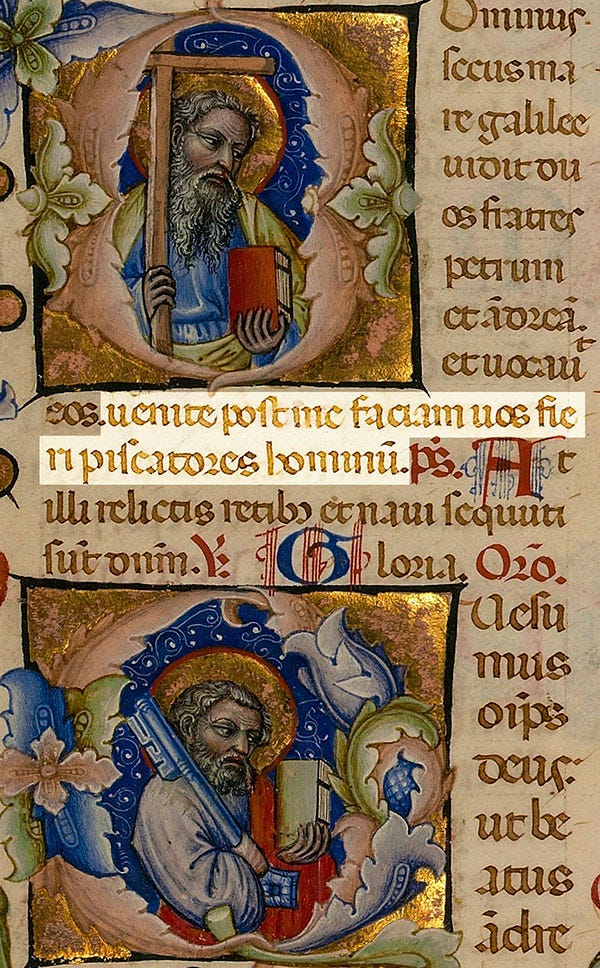 Dominus
secus ma
re galilee
uidit du
os fratres
petrum
et ādreā.
et uocauit
eos. uenite post me faciam uos fie
ri piscatores hominū. p̄s. At
illi relictis retibꝫ et naui secuti
sūt dn̄m. ℣. Gloria. Orō.
Quesu
mus
oīps
deus:
ut be
atus
ādre